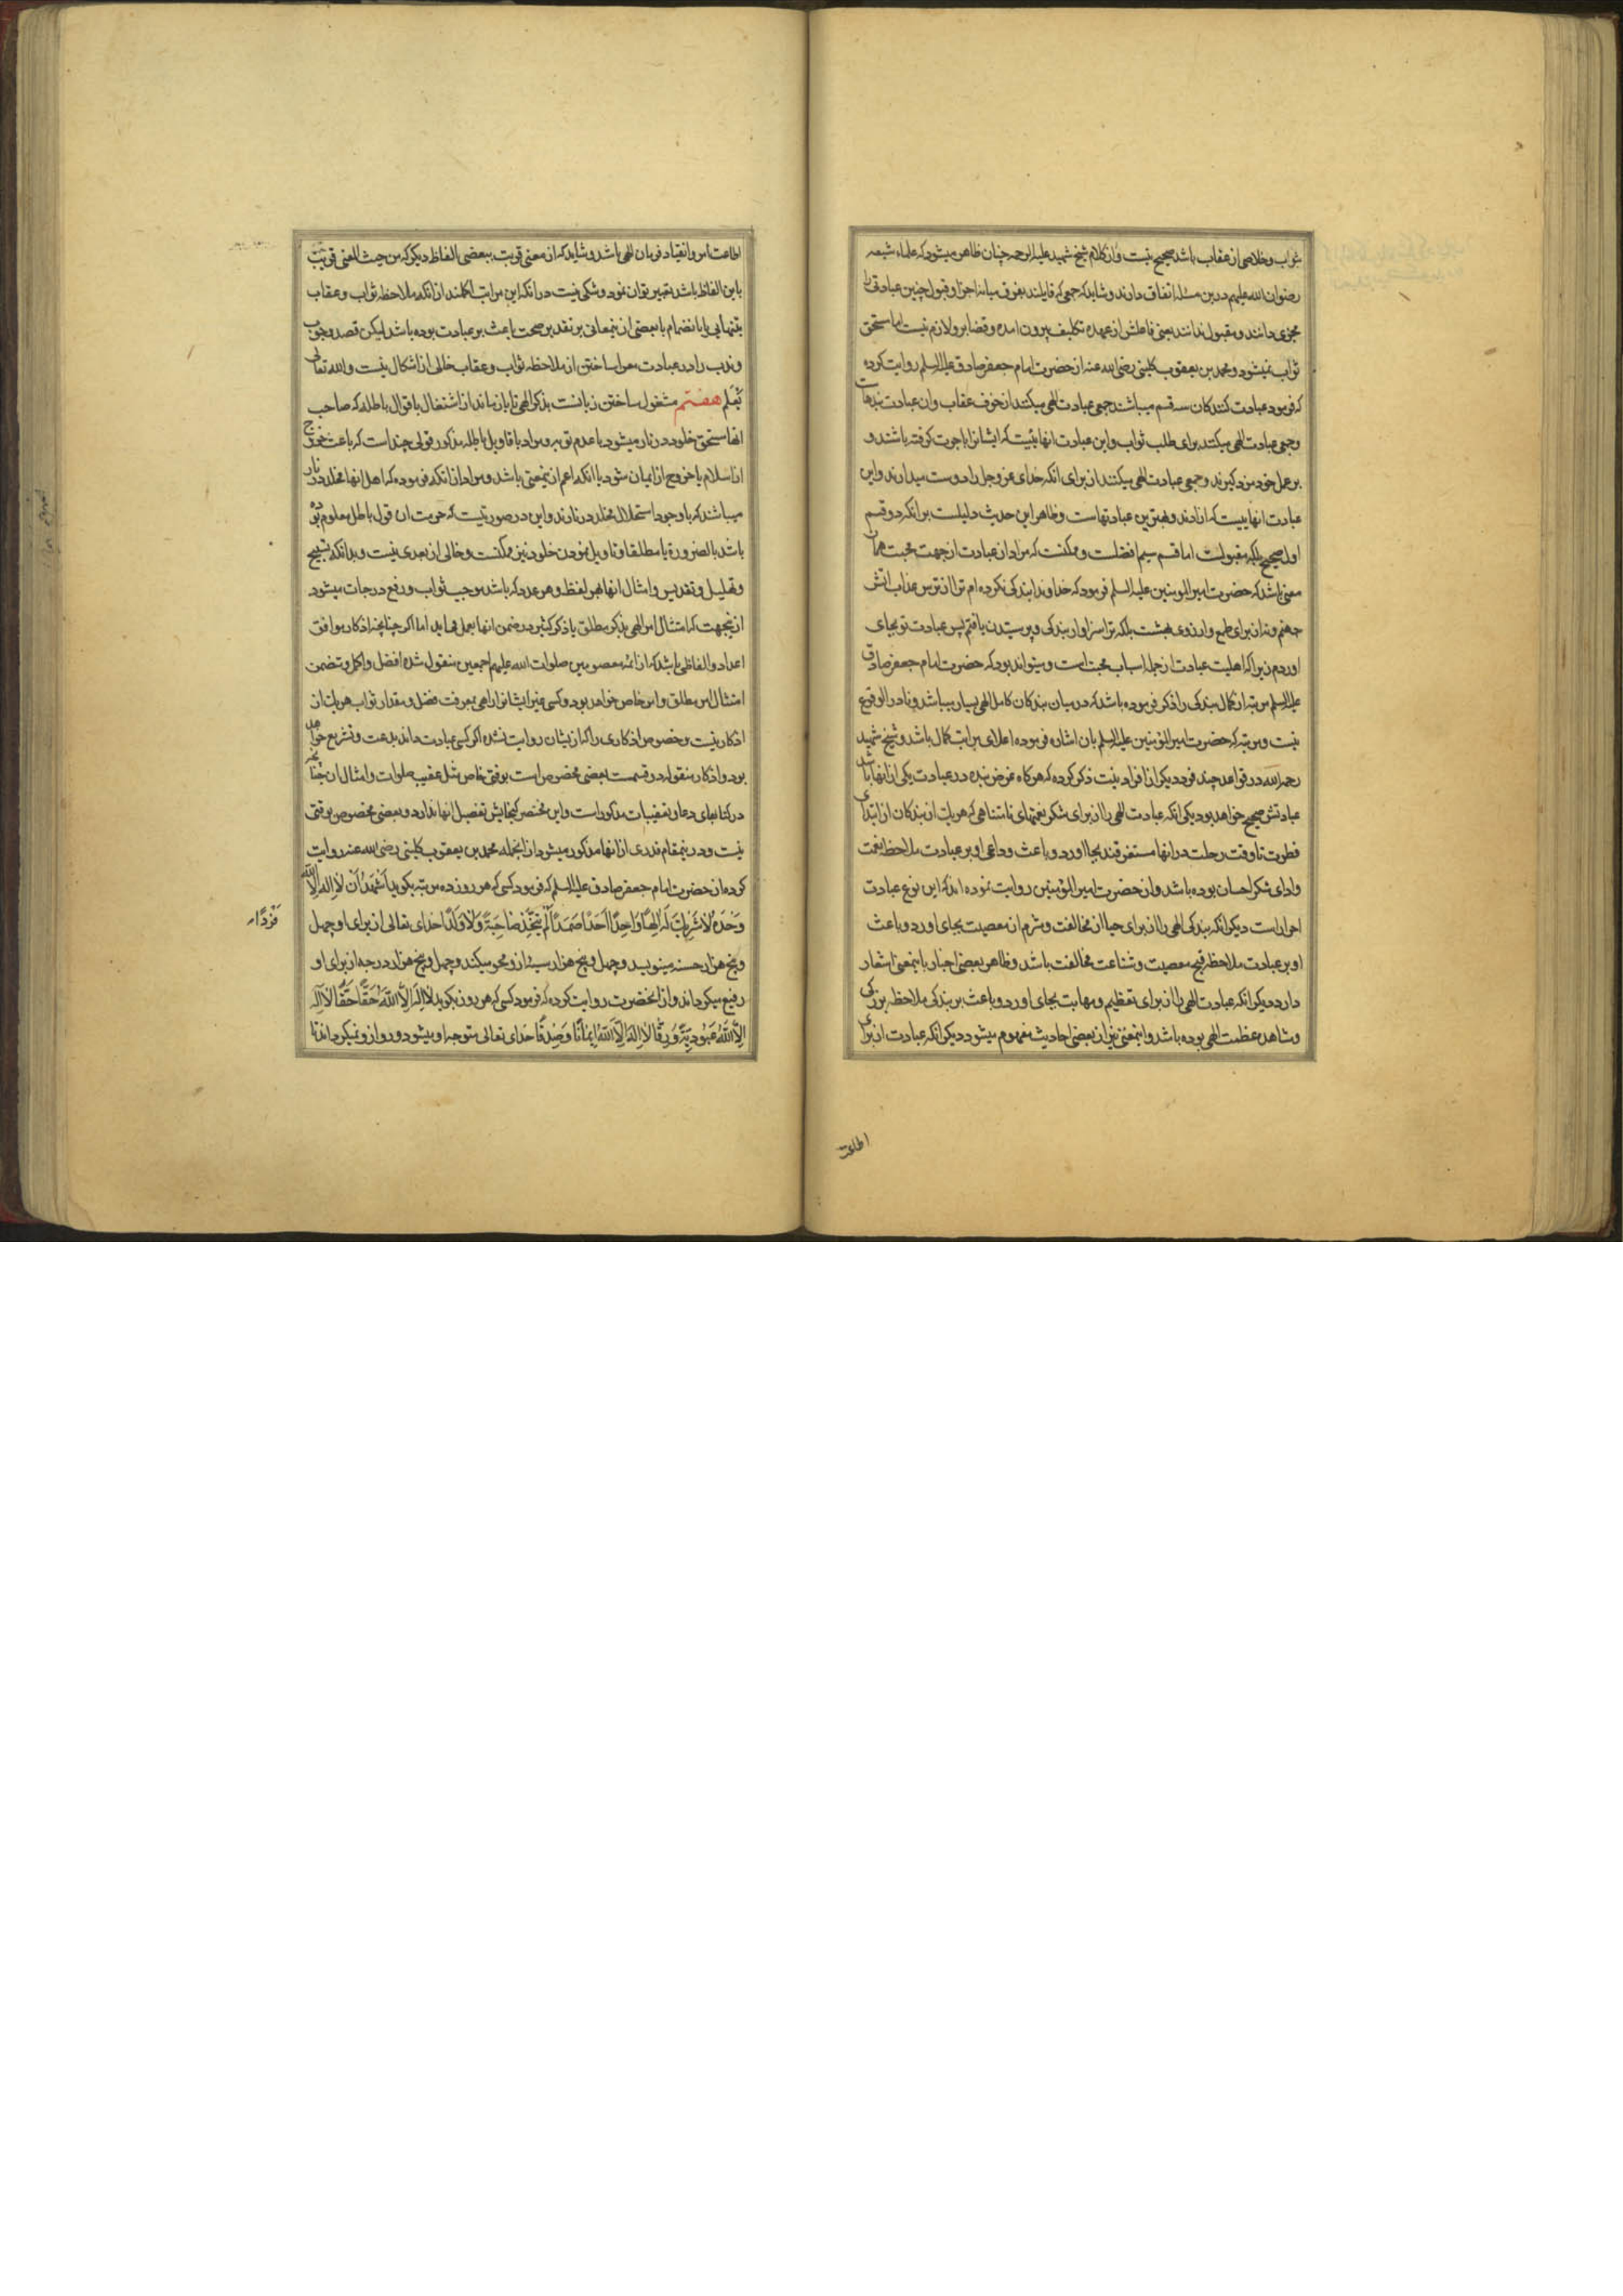 ثواب و خلاصی از عقاب باشد صحیح نیست و از کلام شیخ شهید علیه الرحمه چنان ظاهر میشود که علماء شیعه
رضوان الله علیهم درین مسئله اتفاق دارند و شاید که جمعی که قایلند بفرق میانه اجزا و قبول چنین عبادتی را
مجزی دانند و مقبول ندانند یعنی فاعلش از عهده تکلیف بیرون امده و قضا برو لازم نیست اما مستحق
ثواب نمیشود و محمد بن یعقوب کلینی رضی الله عنه از حضرت امام جعفر صادق علیه السلم روایت کرده
که فرمود عبادت کنندکان سه قسم میباشند جمعی عبادت الهی میکنند از خوف عقاب و ان عبادت بندهاست
و جمعی عبادت الهی میکنند برای طلب ثواب و این عبادت انهائیست که ایشانرا باجرت کرفته باشند و
بر عمل خود مزد کیرند و جمعی عبادت الهی میکنند از برای انکه خدای عز و جل را دوست میدارند و این
عبادت انهاییست که ازادند و بهترین عبادتهاست و ظاهر این حدیث دلیلست بر انکه دو قسم
اول صحیح بلکه مقبولست اما قسم سیم افضلست و ممکنست که مراد از عبادت از جهت محبت همان
معنی باشد که حضرت امیر المومنین علیه السلم فرمود که خداوندا بندکی نکرده ام ترا از ترس عذاب اتش
جهنم و نه از برای طمع و ارزوی بهشت بلکه ترا سزاوار بندکی و پرستیدن یافتم پس عبادت تو بجای
اوردم زیرا که اهلیت عبادت از جمله اسباب محبت است و میتواند بود که حضرت امام جعفر صادق
علیه السلم مرتبه از کمال بندکی را ذکر فرموده باشد که در میان بندکان کامل الهی بسیار میباشد و نادر الوقوع
نیست و مرتبه که حضرت امیر المؤمنین علیه السلم بان اشاره فرموده اعلای مراتب کمال باشد و شیخ شهید
رحمه الله در قواعد چند فرد دیکر از افراد نیت ذکر کرده که هر کاه غرض بنده در عبادت یکی از انها باشد
عبادتش صحیح خواهد بود یکی انکه عبادت الهی را از برای شکر نعمتهای نامتناهی که هر یک از بندکان از ابتدای
فطرت تا وقت رحلت در انها مستغرقند بجا اورد و باعث و داعی او بر عبادت ملاحظه نعمت
و ادای شکر احسان بوده باشد و از حضرت امیر المؤمنین روایت نموده اند که این نوع عبادت
احرار است دیکر انکه بندکی الهی را از برای حیا از مخالفت و شرم از معصیت بجای اورد و باعث
او بر عبادت ملاحظه قبح معصیت و شناعت مخالفت باشد و ظاهر بعضی اخبار باینمعنی اشعار
دارد دیکر انکه عبادت الهی را از برای تعظیم و مهابت بجای اورد و باعث بر بندکی ملاحظه بزرکی
و شاهد عظمت الهی بوده باشد و اینمعنی نیز از بعضی احادیث مفهوم میشود دیکر انکه عبادت از برای
اطاعت
اطاعت امر و انقیاد فرمان الهی باشد و شاید که از معنی قربت ببعضی الفاظ دیکر که من حیث المعنی قریب
باین الفاظ باشد تعبیر توان نمود و شکی نیست در انکه این مراتب اکملند از انکه ملاحظه ثواب و عقاب
بتنهایی یا بانضمام با بعضی از ینمعانی بر تقدیر صحت باعث بر عبادت بوده باشد لیکن قصد وجوب
و ندب را در عبادت معرا ساختن از ملاحظه ثواب و عقاب خالی از اشکال نیست و الله تعالی
یعلم هفتم مشغول ساختن زبانست بذکر الهی تا باز ماند از اشتغال باقوال باطله که صاحب
انها مستحق خلود در نار میشود با عدم توبه و مراد باقاویل باطله مذکور قولی چند است که باعث خروج
از اسلام یا خروج از ایمان شود یا انکه اعم از ینمعنی باشد و مراد از انکه فرموده که اهل انها مخلد در نار
میباشند که با وجود استحلال مخلد در نارند و این در صورتیست که حرمت ان قول باطل معلوم بوده
باشد بالضرورة یا مطلقا و تاویل نمودن خلود نیز ممکنست و خالی از بعدی نیست و بدانکه تسبیح
و تهلیل و تقدیس و امثال انها بهر لفظ و هر عدد که باشد موجب ثواب و رفع درجات میشود
از ینجهت که امتثال امر الهی بذکر مطلق یا ذکر کثیر در ضمن انها بعمل می اید اما اکر چنانچه اذکار موافق
اعداد و الفاظی باشد که از ائمه معصومین صلوات الله علیهم اجمعین منقول شده افضل و اکمل و متضمن
امتثال امر مطلق و امر خاص خواهد بود و کسی غیر ایشانرا راهی بمعرفت فضل و مقدار ثواب هر یک از
اذکار نیست و خصوص اذکاری را که از یشان روایت نشده اکر کسی عبادت داند بدعت و تشریع خواهد
بود و اذکار منقوله دو قسمت بعضی مخصوص است بوقتی خاص مثل عقیب صلوات و امثال ان چنانچه
در کتابهای دعا و تعقیبات مذکور است و این مختصر کنجایش تفصیل انها ندارد و بعضی مخصوص بوقتی
نیست و در ینمقام قدری از انها مذکور میشود از انجمله محمد بن یعقوب کلینی رضی الله عنه روایت
کرده از حضرت امام جعفر صادق علیه السلم که فرمود کسی که هر روز ده مرتبه بکوید اَشْهَدُ اَنْ لا اِلهَ اِلاَّ اللهُ
وَحْدَهُ لا شَرِیكَ لَهُ اِلهًا وَاحِدًا اَحَدًا صَمَدًا لَمْ یَتَّخِذْ صَاحِبَةً وَلا وَلَدًا خدای تعالی از برای او چهل
فَرْدًا
و پنج هزار حسنه مینویسد و چهل و پنج هزار سیئه از و محو میکند و چهل و پنج هزار درجه از برای او
رفیع میکرداند و از انحضرت روایت کرده که فرمود کسی که هر روز بکوید لا اِلهَ اِلاَّ اللهُ حَقًّا حَقًّا لا اِلهَ
اِلاَّ اللهُ عُبُودِیَّةً وَرِقًّا لا اِلهَ اِلاَّ اللهُ اِیمَانًا وَصِدْقًا خدای تعالی متوجه او میشود و رو از و نمیکرداند تا